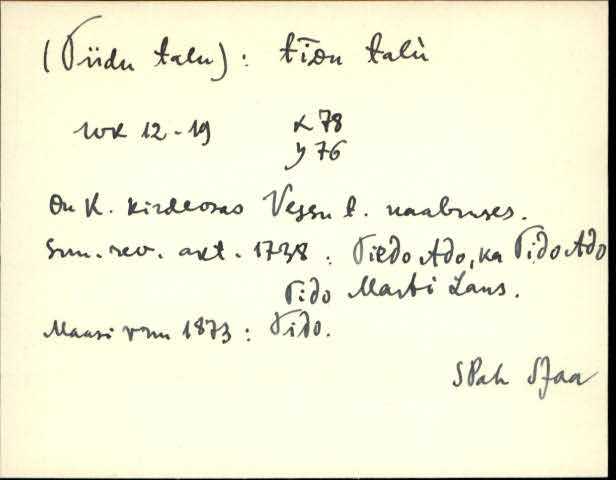 (Tiidu talu): tīᴅu talù
WK 12-19 x 78
y 76
On K. kirdeosas Vessu t. naabruses.
Sm. rev. akt. 1738: Tiedo Ado, ka Tido Ado
Tido Marti Laus.
Maasi vm 1873: Tido.
SPäh SJaa